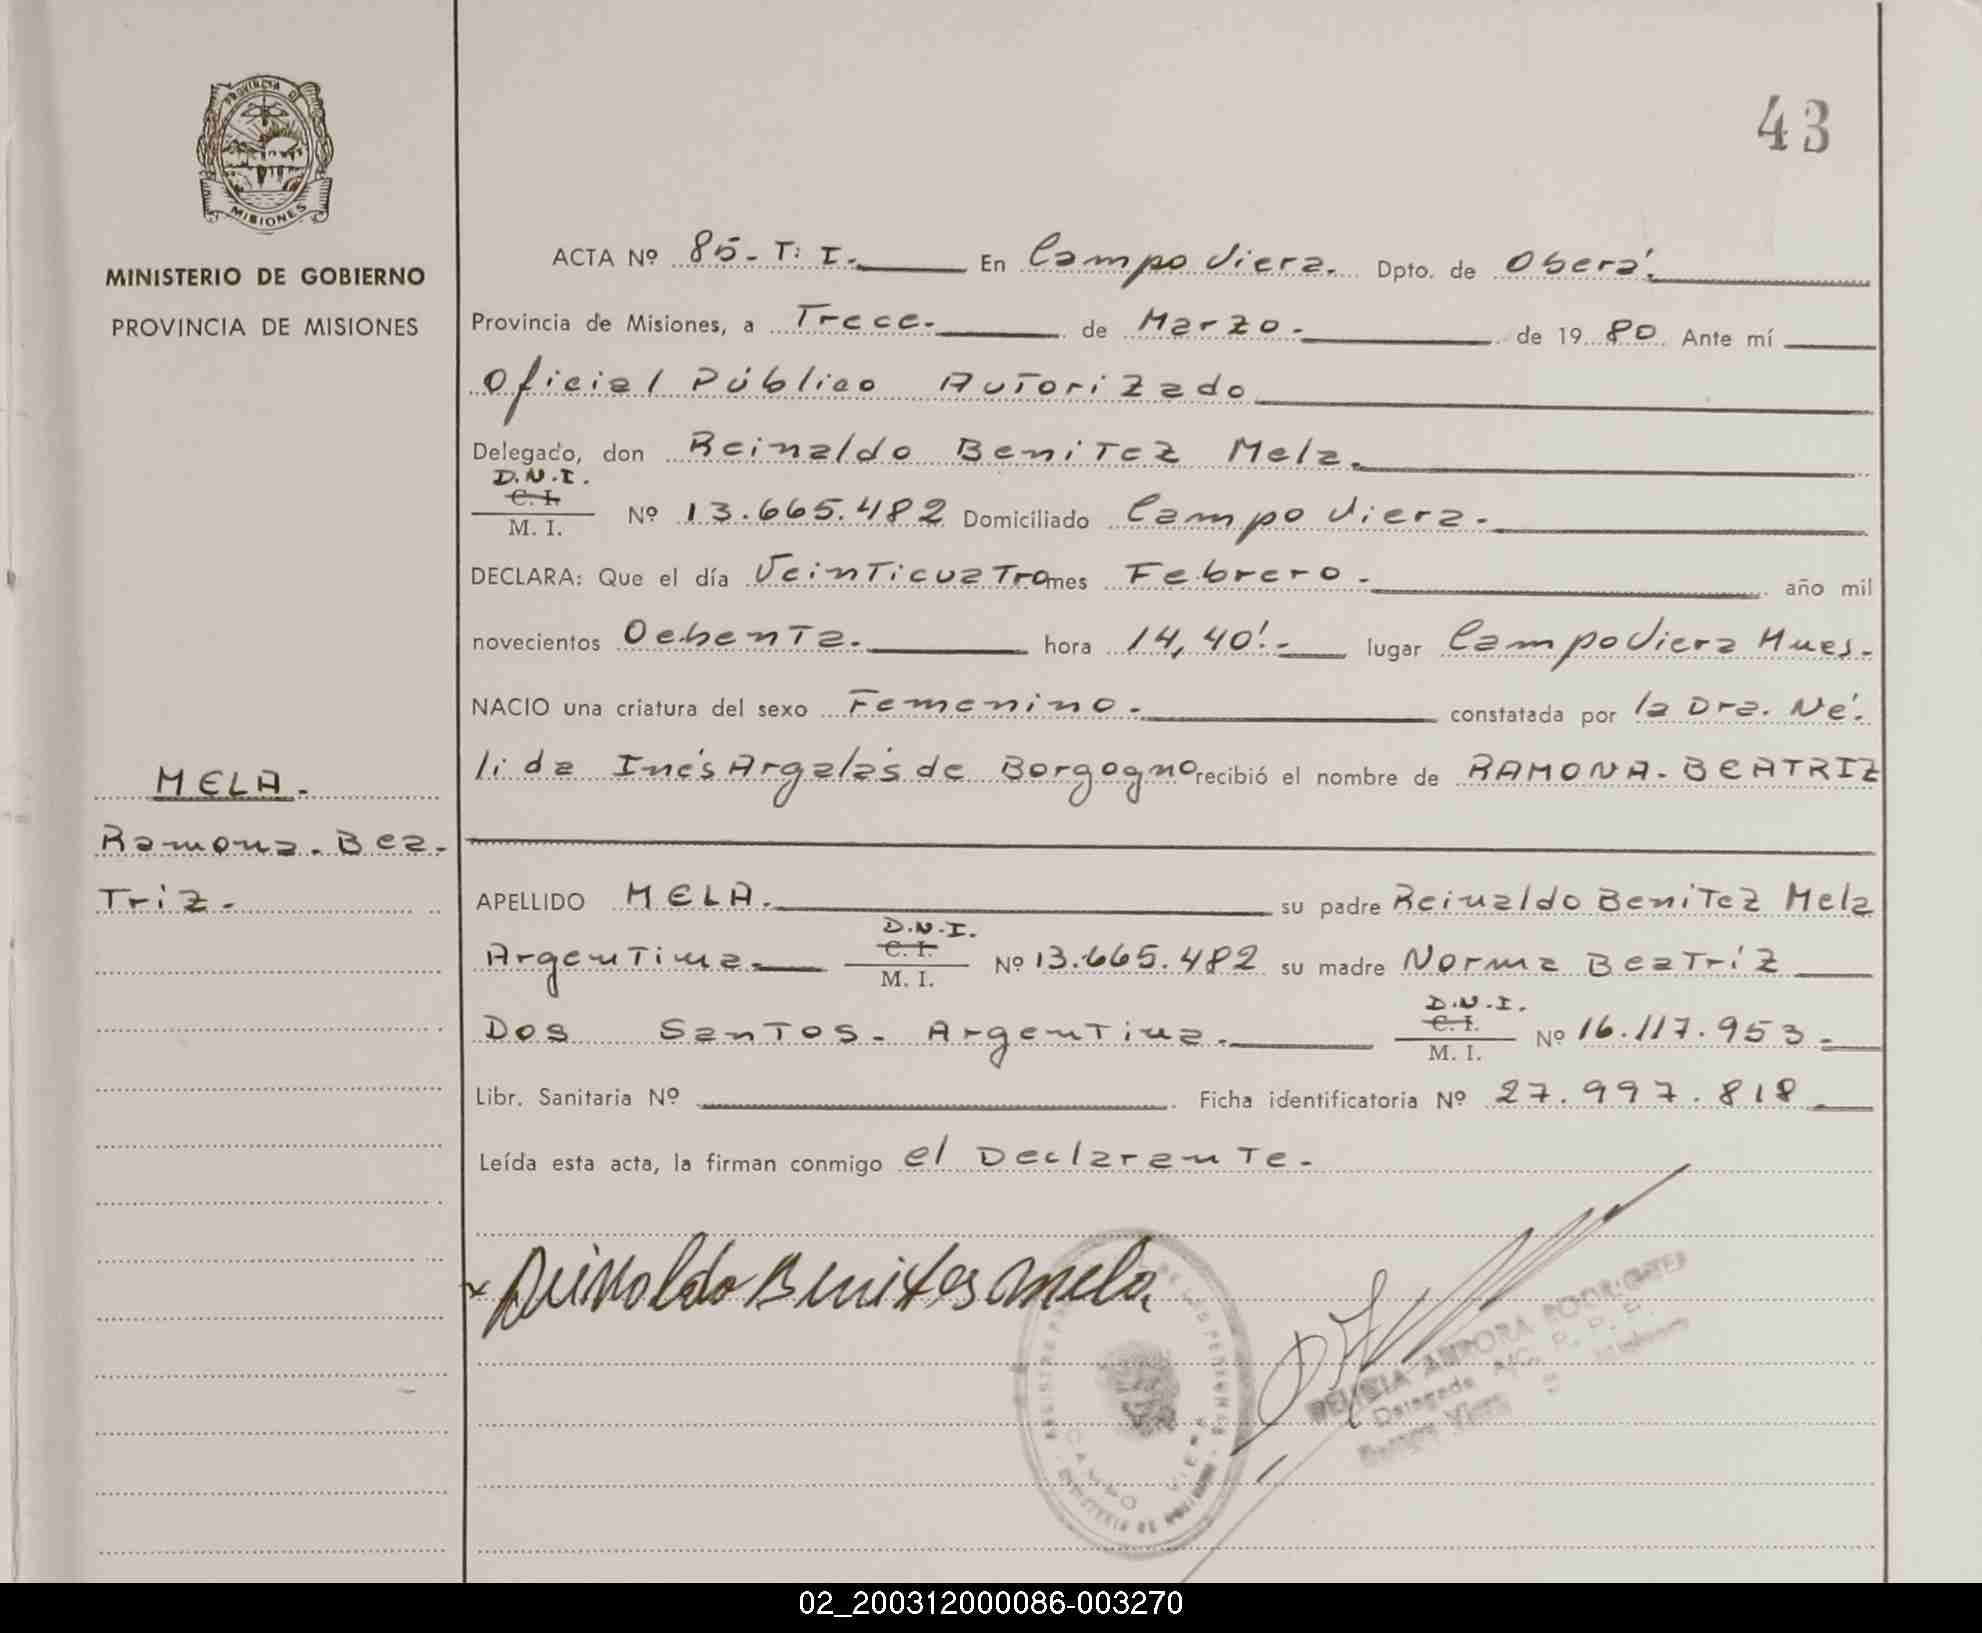 PROVINCIA DE
MISIONES
MINISTERIO DE GOBIERNO
PROVINCIA DE MISIONES
MELA.
Ramona. Bea-
Triz-
43
ACTA Nº 85- T: I. En Campo Viera. Dpto. de Oberá.
Provincia de Misiones, a Trece- de Marzo- de 19 80 Ante mí
Oficial Público Autorizado
Delegado, don Reinaldo Benitez Mela.
D.N.I.
C. I.
M. I. Nº 13.665.482 Domiciliado Campo Viera.
DECLARA: Que el día VeinTicuaTro mes Febrero. año mil
novecientos Ochenta. hora 14,40'.- lugar Campo Viera Mues.
NACIO una criatura del sexo Femenino. constatada por la Dra. Né-
lida Inés Argalás de Borgogno recibió el nombre de RAMONA-BEATRIZ
APELLIDO MELA. su padre Reinaldo Benitez Mela
Argentina. D.N.I. C. I. M. I. Nº 13.665.482 su madre Norma Beatríz
Dos Santos. Argentina. D.N.I. C. I. M. I. Nº 16.117.953.
Libr. Sanitaria Nº Ficha identificatoria Nº 27.997.818
Leída esta acta, la firman conmigo el Declarante.
x Reinaldo Benites Mela.
CAMPO VIERA
AURORA RODRIGUEZ
Delegada A/C. R. P. P.
Campo Viera Misiones
02_200312000086-003270